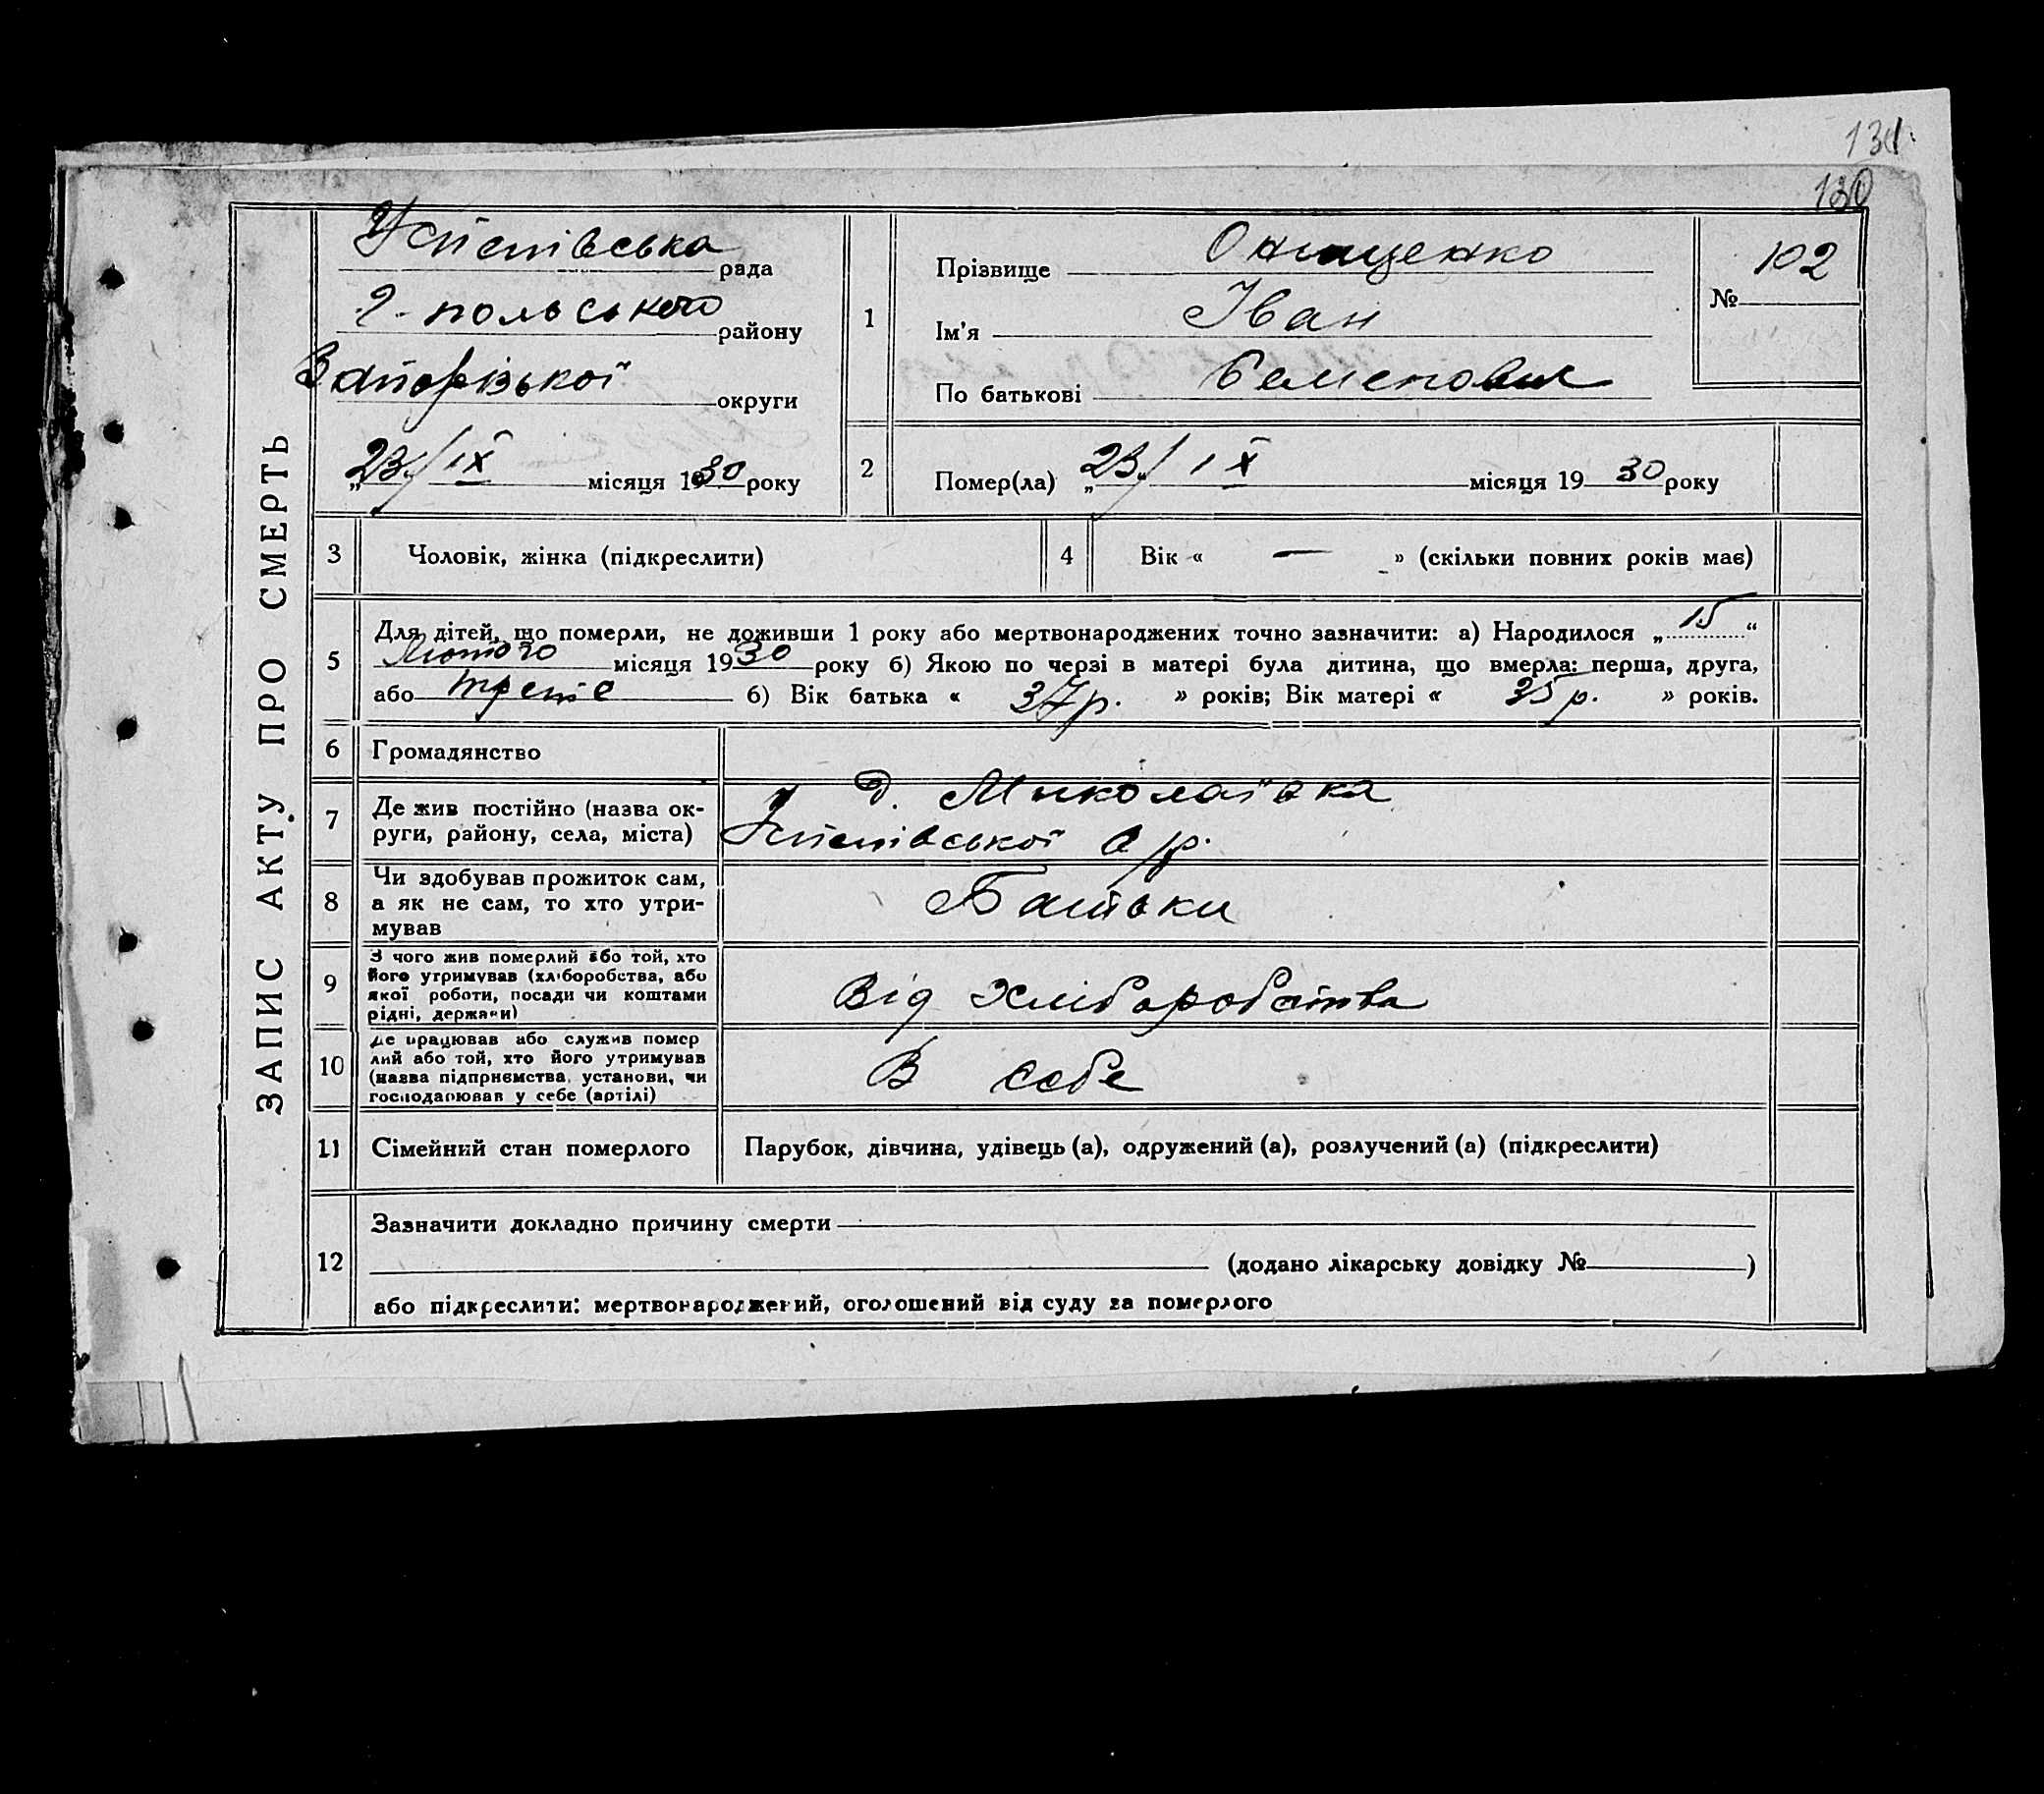 131.
130
ЗАПИС АКТУ ПРО СМЕРТЬ
Успенівська рада
Г-польського району
Запорізької округи
„23/ ІХ місяця 1930 року
1
Прізвище Онищенко
Ім’я Іван
По батькові Семенович
№ 102
2
Помер(ла) „23/ ІХ місяця 1930 року
3 Чоловік, жінка (підкреслити)
4 Вік « — » (скільки повних років має)
5 Для дітей, що померли, не доживши 1 року або мертвонароджених точно зазначити: а) Народилося „15“
Лютого місяця 1930 року б) Якою по черзі в матері була дитина, що вмерла: перша, друга,
або третє б) Вік батька « 37р. » років; Вік матері « 35р. » років.
6 Громадянство
7 Де жив постійно (назва ок-
руги, району, села, міста)
д. Миколаївка
Успенівської с/р.
8 Чи здобував прожиток сам,
а як не сам, то хто утри-
мував
Батьки
9 З чого жив померлий або той, хто
його утримував (хліборобства, або
якої роботи, посади чи коштами
рідні, держави)
Від хліборобства
10 Де працював або служив помер
лий або той, хто його утримував
(назва підприємства, установи, чи
господарював у себе (артілі)
В себе
11 Сімейний стан померлого Парубок, дівчина, удівець (а), одружений (а), розлучений (а) (підкреслити)
12 Зазначити докладно причину смерти
(додано лікарську довідку № )
або підкреслити: мертвонароджений, оголошений від суду за померлого